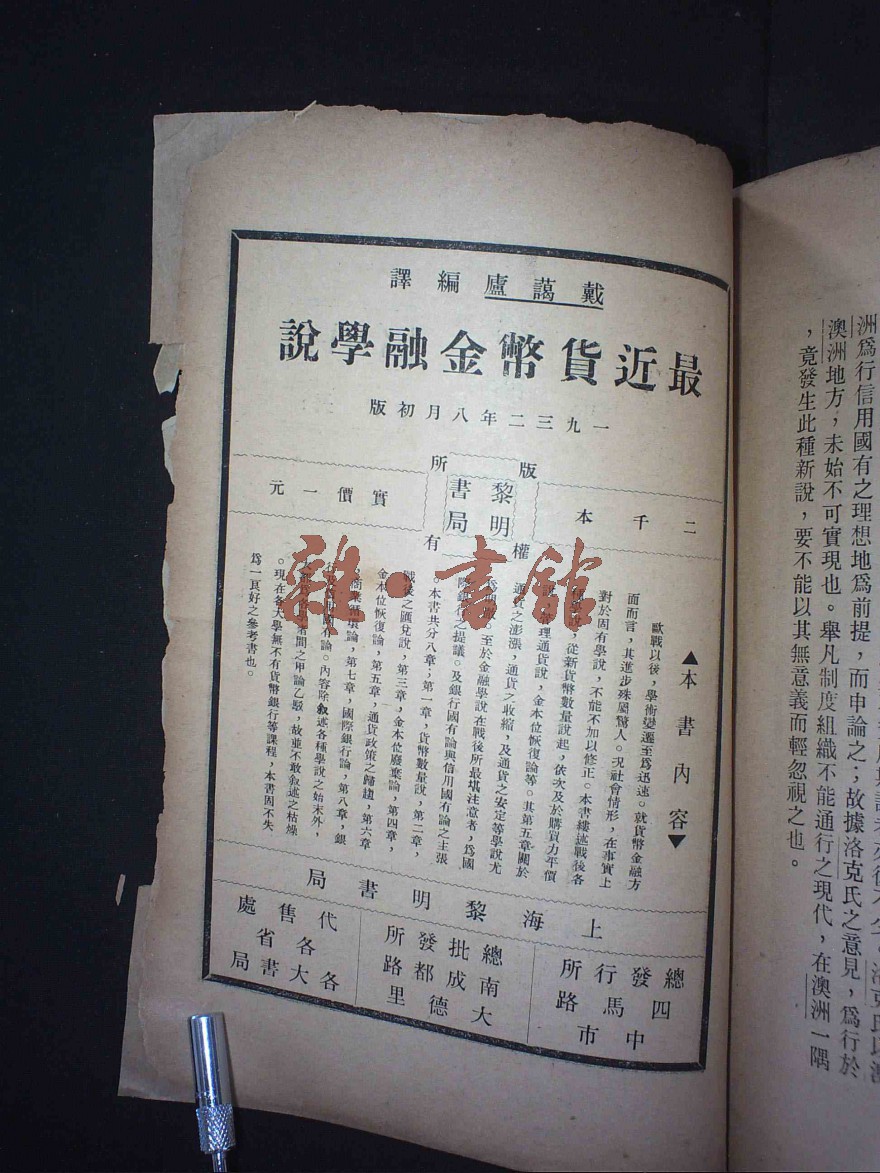 戴蔼廬編譯
最近貨幣金融學說
一九三二年八月初版
版權所有
黎明書局
二千本
實價一元
▲本書內容▼
歐戰以後，學術變遷至爲迅速。就貨幣金融方
面而言，其進步殊屬驚人。現社會情形，在事實上
對於固有學說，不能不加以修正。本書縷述戰後各
從新貨幣數量說起，依次及於購買力平價
理通貨說，金本位恢復論等。其第五章關於
通貨之澎漲，通貨之收縮，及通貨之安定等學說尤
至於金融學說在戰後所最堪注意者，爲國
際銀行之提議。及銀行國有論與信用國有論之主張
。本書共分八章；第一章，貨幣數量說，第二章，
戰後之匯兌說，第三章，金本位廢棄論，第四章，
金本位恢復論，第五章，通貨政策之歸趨，第六章
，商業循環論，第七章，國際銀行論，第八章，銀
論。內容除敘述各種學說之始末外，
者間之甲論乙駁，故並不敢敘述之枯燥
。現在各大學無不有貨幣銀行等課程，本書固不失
爲一良好之參考書也。
上海黎明書局
總發行所
四馬路中市
總批發所
南成都路大德里
代售處
各省各大書局
雜·書館
洲爲行信用國有之理想地爲前提，而申論之；故據洛克氏之意見，爲行於
澳洲地方；未始不可實現也。舉凡制度組織不能通行之現代，在澳洲一隅
，竟發生此種新說，要不能以其無意義而輕忽視之也。